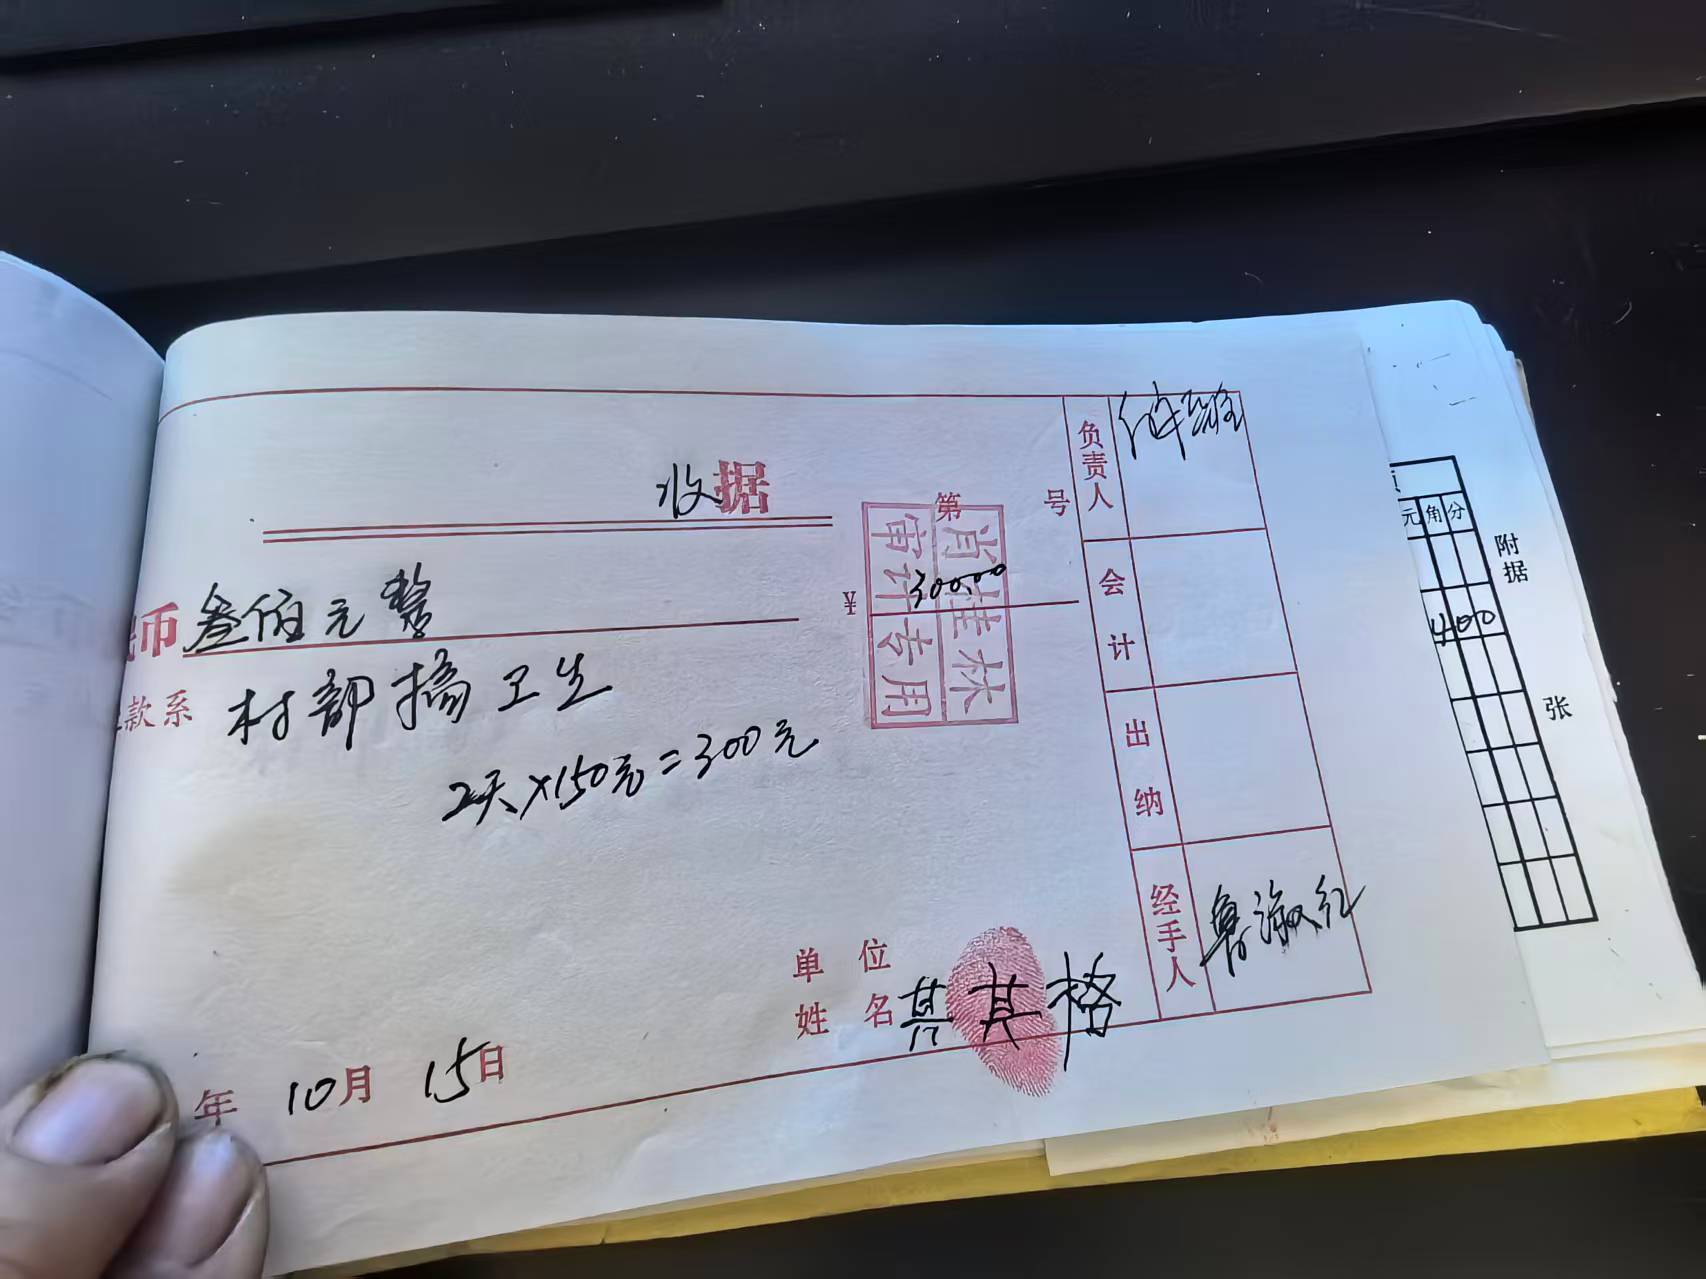 收据
第 号
币 叁佰元整
¥ 300.00
肖桂林
审计专用
款系 村部搞卫生
2天×150元=300元
单位
姓名 其其格
年 10月 15日
负责人
会计
出纳
经手人 鲁淑红
元角分
400
附据
张